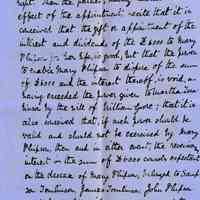 effect of the appointment recite that it is
conceived that the gift or appointment of the
interest and dividends of the £6000 to Mary
Phipson for her life, is good, but that the power
to enable Mary Phipson to dispose of the sum
of £6000 and the interest thereof, is void, as
having exceeded the power given to Martha
by the will of William Gore; that it is
also conceived that, if such power should be
valid and should not be exercised by Mary
Phipson, then and in either event, the reversionary
interest in the sum of £6000 consols expectant
on the decease of Mary Phipson, belongs to
Tomlinson, James Tomlinson, John Phipson